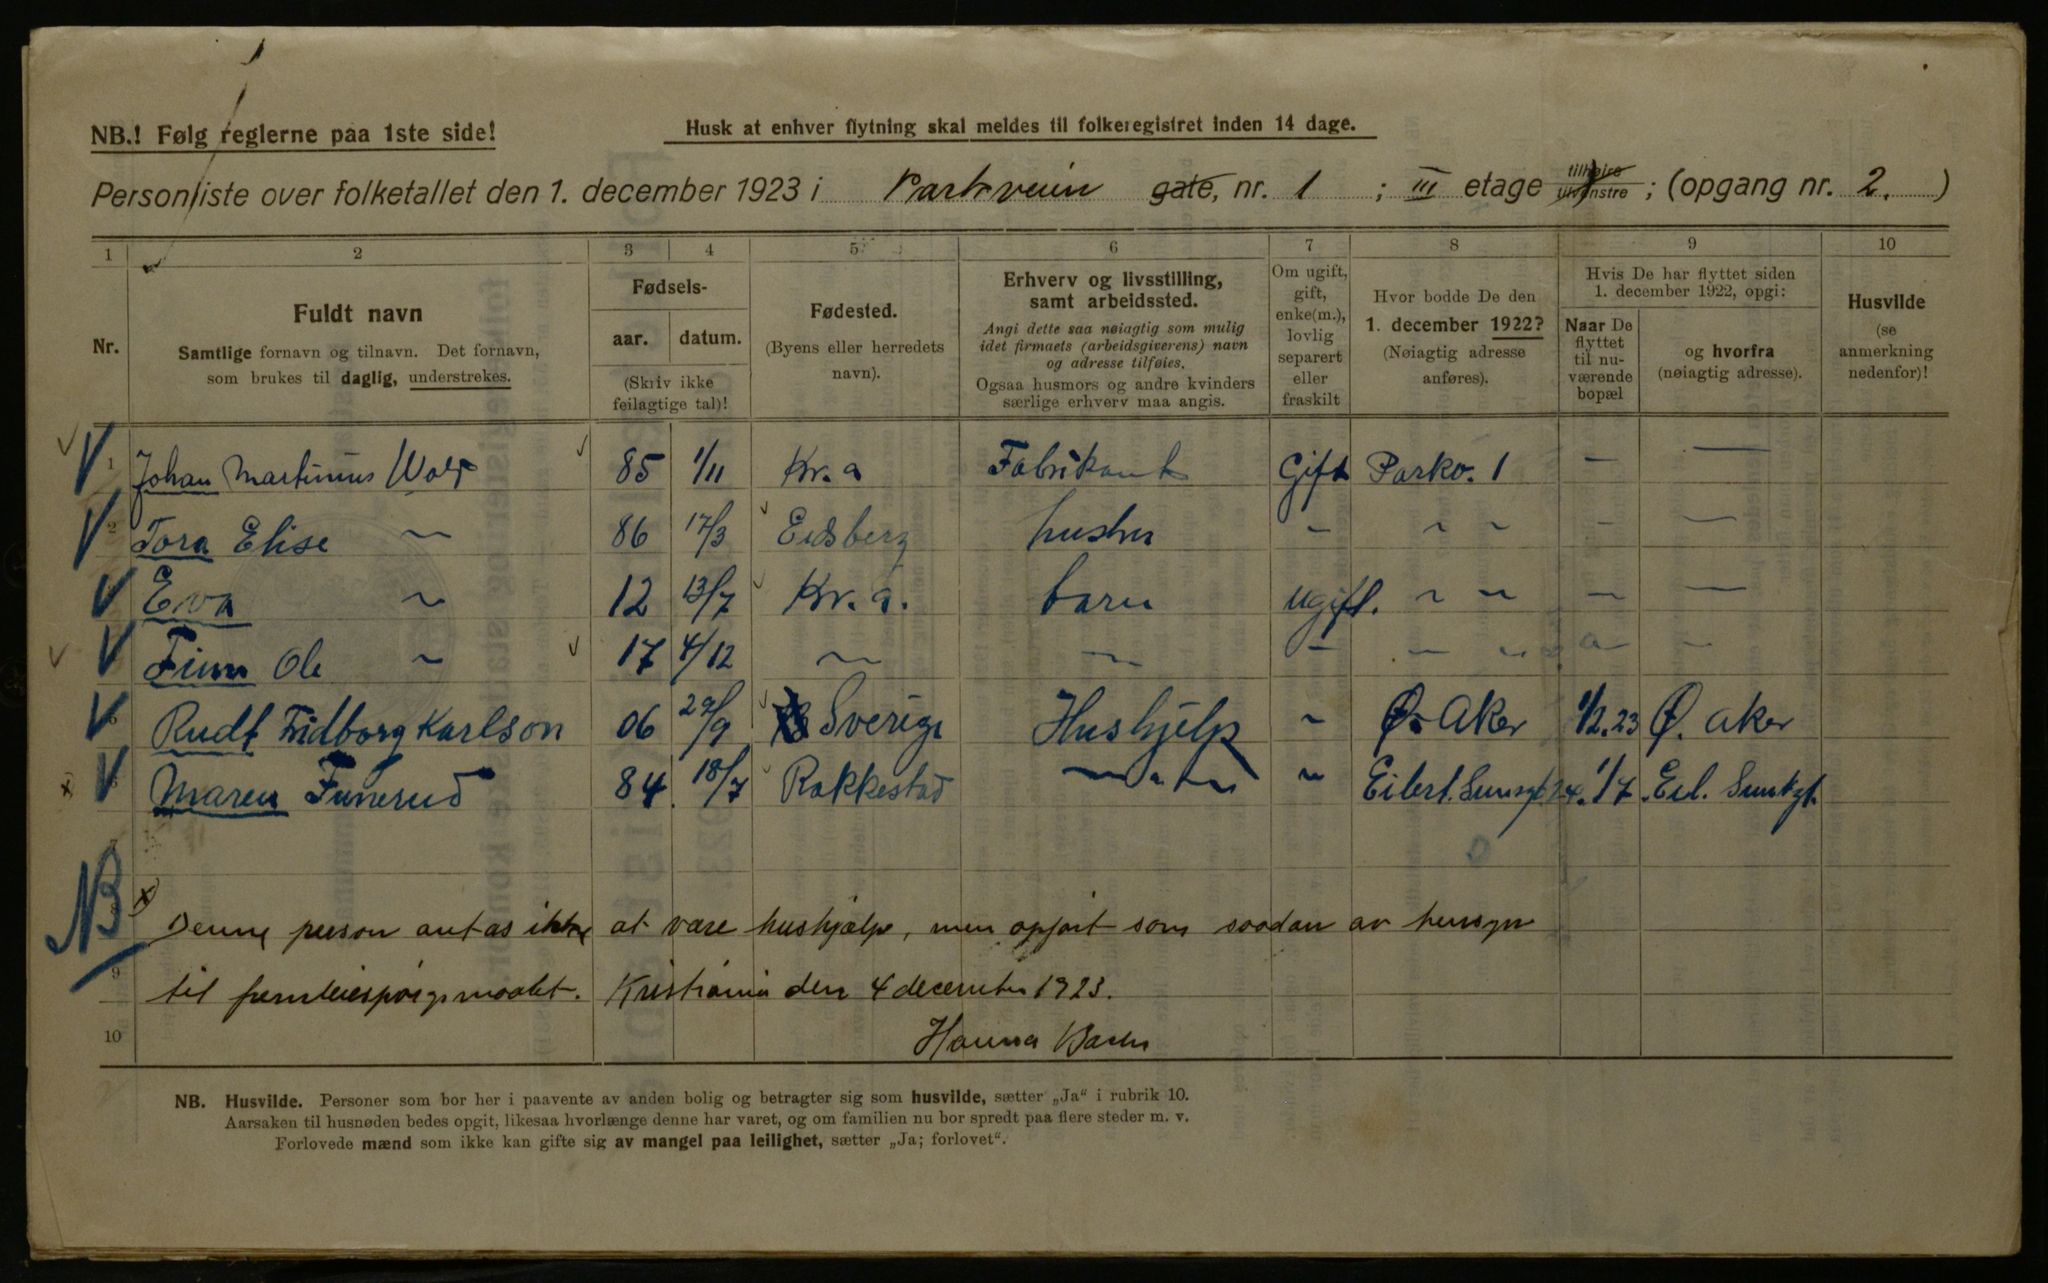 NB.! Følg reglerne paa 1ste side!
Husk at enhver flytning skal meldes til folkeregistret inden 14 dage.
Personliste over folketallet den 1. december 1923 i Parkveien gate, nr. 1 ; III etage tilhøire tilvenstre ; (opgang nr. 2. )
1 2 3 4 5 6 7 8 9 10
Nr.
Fuldt navn
Samtlige fornavn og tilnavn. Det fornavn,
som brukes til daglig, understrekes.
Fødsels-
aar. datum.
(Skriv ikke
feilagtige tal)!
Fødested.
(Byens eller herredets
navn).
Erhverv og livsstilling,
samt arbeidssted.
Angi dette saa nøiagtig som mulig
idet firmaets (arbeidsgiverens) navn
og adresse tilføies.
Ogsaa husmors og andre kvinders
særlige erhverv maa angis.
Om ugift,
gift,
enke(m.),
lovlig
separert
eller
fraskilt
Hvor bodde De den
1. december 1922?
(Nøiagtig adresse
anføres).
Hvis De har flyttet siden
1. december 1922, opgi:
Naar De
flyttet
til nu-
værende
bopæl
og hvorfra
(nøiagtig adresse).
Husvilde
(se
anmerkning
nedenfor)!
1 Johan Martinius Wold 85 1/11 Kr.a Fabrikant Gift Parkv. 1 — —
2 Tora Elise ~ 86 17/3 Eidsberg hustru ~ ~ ~ — —
Eva ~ 12 13/7 Kr.a. barn ugift. ~ ~ — —
Finn Ole ~ 17 4/12 ~ ~ ~ ~ ~ ~ ~
Rudt Fridborg Karlson 06 29/9 Sverige Hushjelp ~ Ø. Aker 1/2.23 Ø. Aker
Maren 84. 18/7 Rakkestad ~ ~ ~ ~ Eilert Sundsgt 24. 1/7. Eil. Sundtgt.
7
NB x) Denne person antas ikke at være hushjælp, men opført som saadan av hensyn
9 til fremleiespørgsmaalet. Kristiania den 4 december 1923.
10 Hanna
NB. Husvilde. Personer som bor her i paavente av anden bolig og betragter sig som husvilde, sætter „Ja“ i rubrik 10.
Aarsaken til husnøden bedes opgit, likesaa hvorlænge denne har varet, og om familien nu bor spredt paa flere steder m. v.
Forlovede mænd som ikke kan gifte sig av mangel paa leilighet, sætter „Ja; forlovet“.